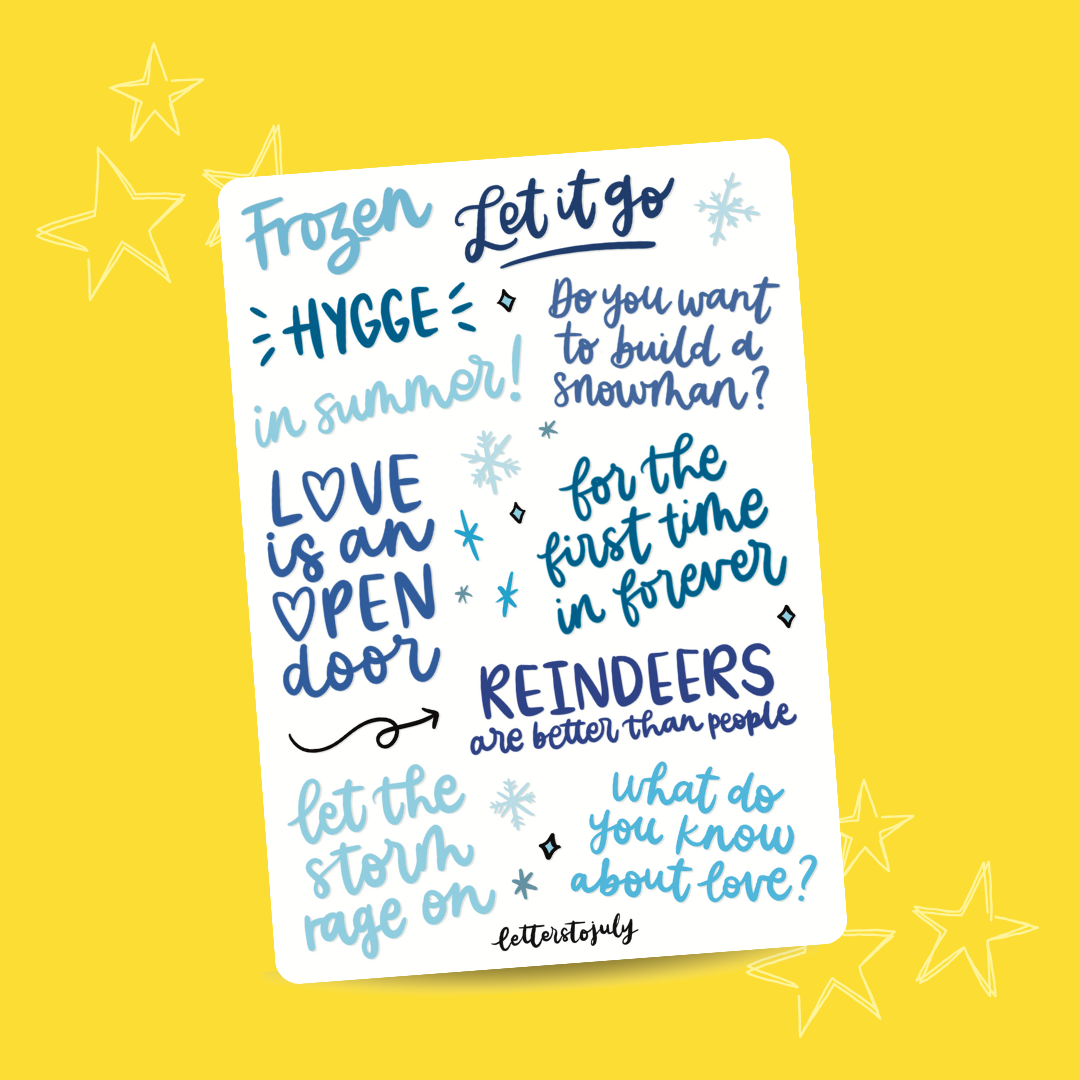 Frozen
Let it go
HYGGE
Do you want
to build a
snowman?
in summer!
LOVE
is an
OPEN
door
for the
first time
in forever
REINDEERS
are better than people
let the
storm
rage on
what do
you know
about love?
letterstojuly